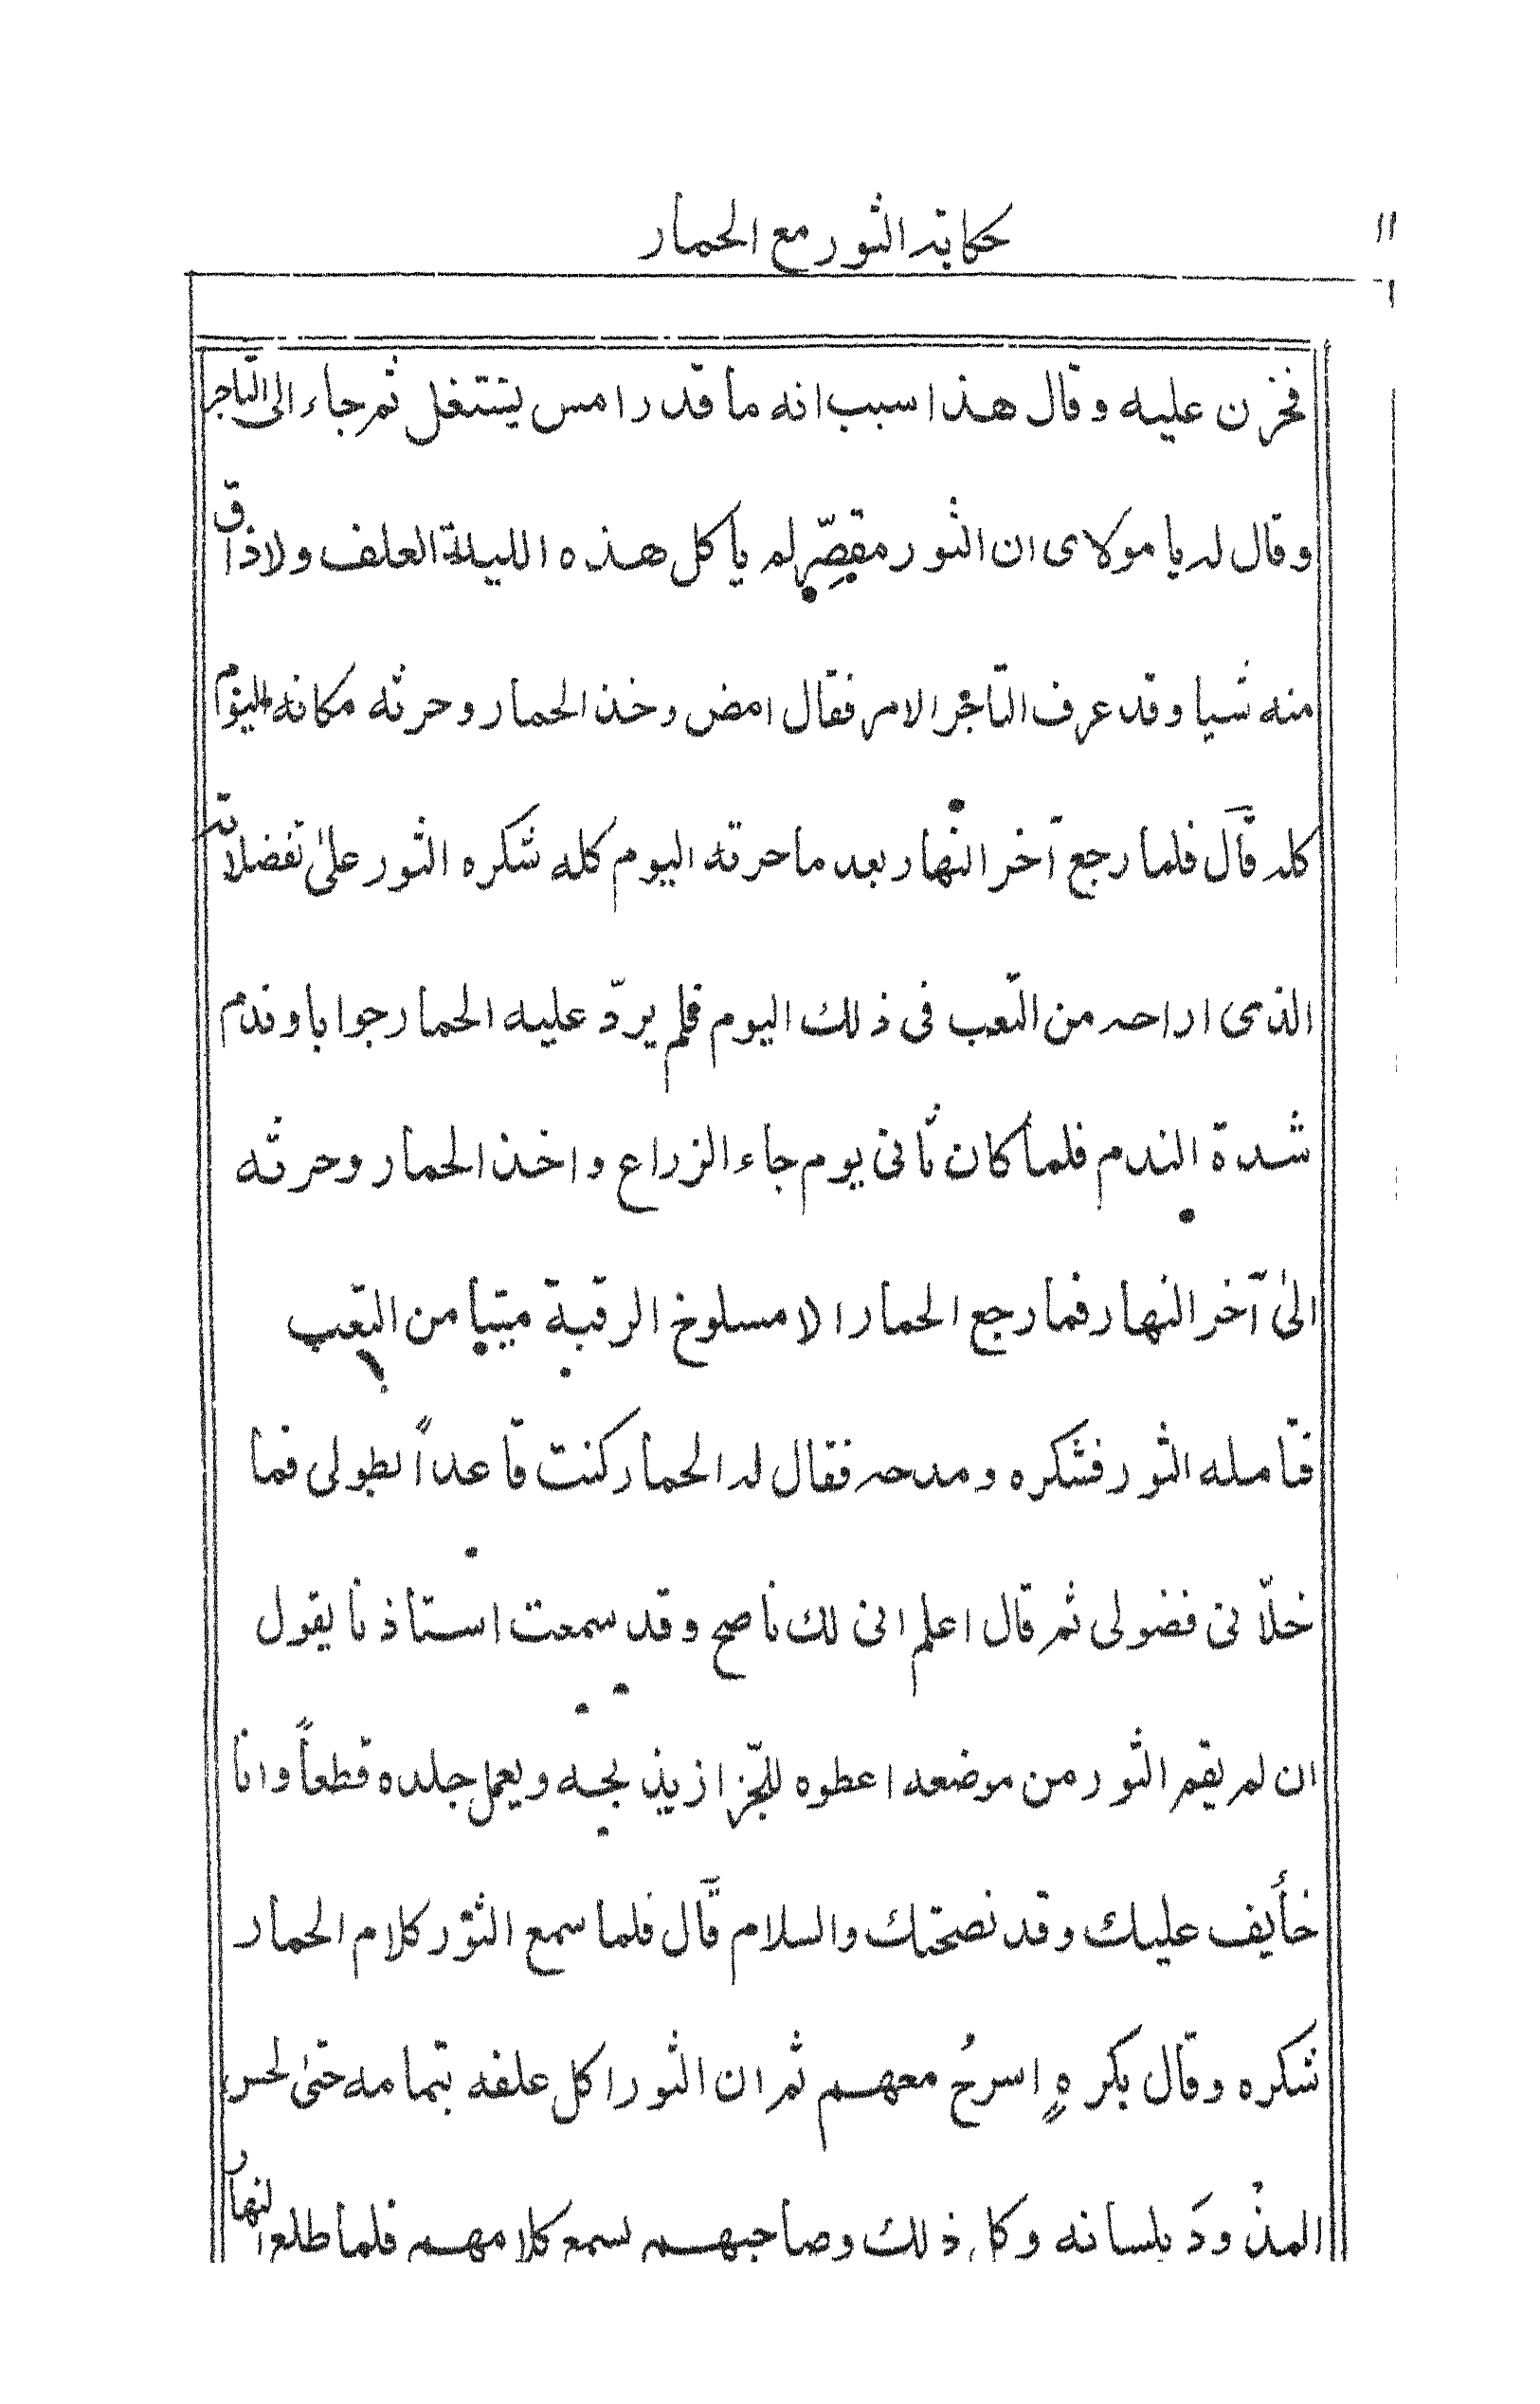 ١١
حكاية الثور مع الحمار
فحزن عليه وقال هذا سبب انه ما قدر امس يشتغل ثم جاء الى التاجر
وقال له يا مولاى ان الثور مقصّر لم يأكل هذه الليلة العلف ولا ذاق
منه شيا وقد عرف التاجر الامر فقال امض وخذ الحمار وحرثه مكانه اليوم
كله قال فلما رجع آخر النهار بعد ما حرثه اليوم كله شكره الثور على تفضلاته
الذى اراحه من التعب فى ذلك اليوم فلم يردّ عليه الحمار جوابا وندم
شدة الندم فلما كان ثانى يوم جاء الزراع واخذ الحمار وحرثه
الى آخر النهار فما رجع الحمار الا مسلوخ الرقبة ميتيا من التعب
فتأمله الثور فشكره ومدحه فقال له الحمار كنت قاعداً بطولى فما
خلّانى فضولى ثم قال اعلم انى لك ناصح وقد سمعت استاذنا يقول
ان لم يقم الثور من موضعه اعطوه للجّزار يذبحه ويعمل جلده قطعاً وانا
خأيف عليك وقد نصحتك والسلام قال فلما سمع الثور كلام الحمار
شكره وقال بكرهٍ اسرحُ معهم ثم ان الثور اكل علفه بتمامه حتى لحس
المذودَ بلسانه وكل ذلك وصاحبهم يسمع كلامهم فلما طلع النهار